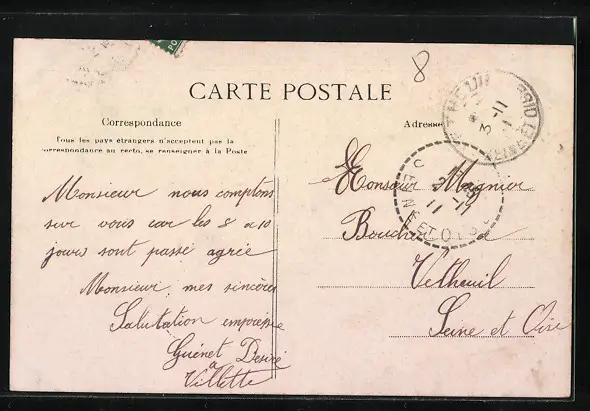 8
CARTE POSTALE
Correspondance
Tous les pays étrangers n'acceptent pas la
correspondance au recto, se renseigner à la Poste
Monsieur nous comptons
sur vous car les 8 a 10
jours sont passé agrée
Monsieur, mes sincères
Salutation empressé
Guénet Desiré
a
Villette
Adresse
Monsieur Magnier
Boucher a
Vetheuil
Seine et Oise
3 -11
11
SEINE ET OISE